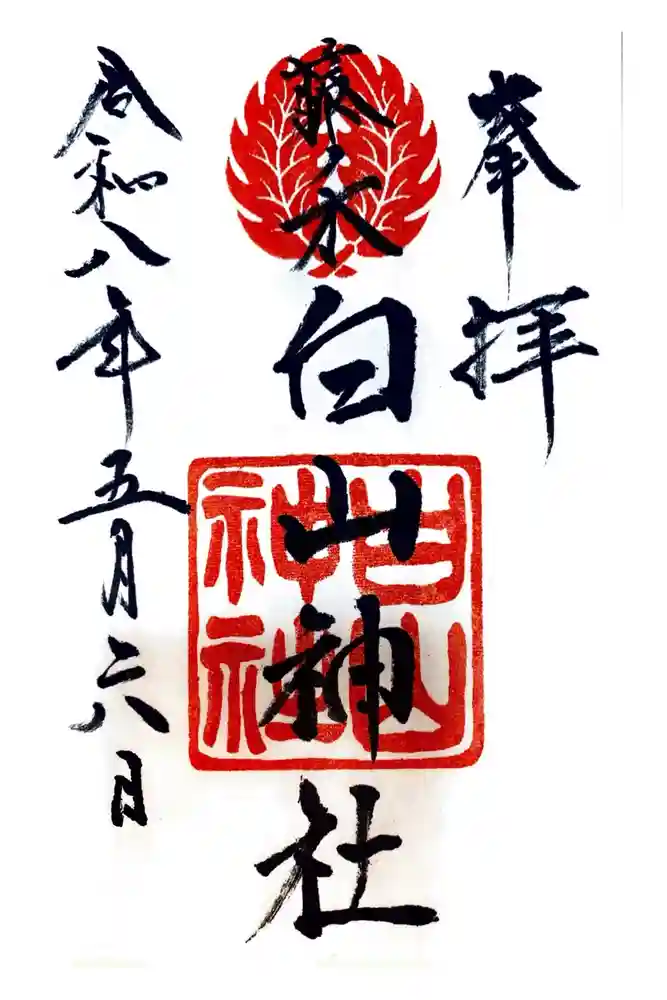 奉拝
白山神社
令和八年五月六日
白山
神社